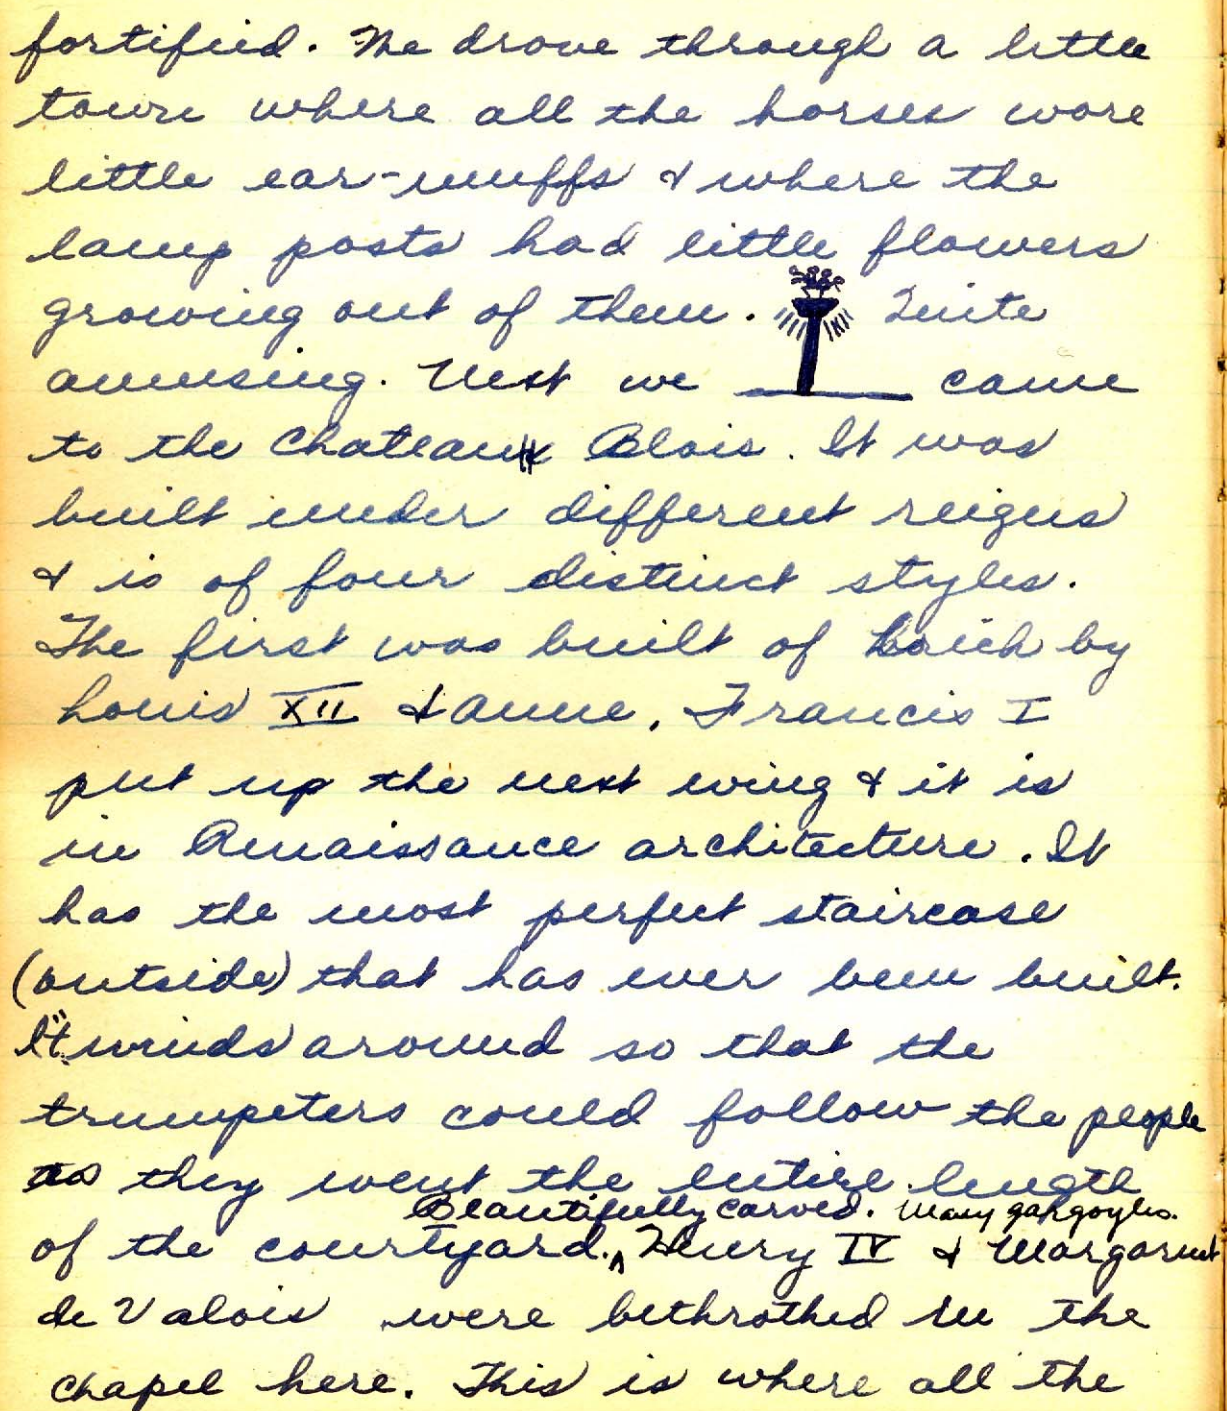 fortified. We drove through a little
town where all the horses wore
little ear-muffs & where the
lamp posts had little flowers
growing out of them. Quite
amusing. Next we came
to the Chateau Blois. It was
built under different reigns
& is of four distinct styles.
The first was built of brick by
Louis XII & Anne. Francis I
put up the next wing & it is
in Renaissance architecture. It
has the most perfect staircase
(outside) that has ever been built.
It winds around so that the
trumpeters could follow the people
as they went the entire length
Beautifully carved. Many gargoyles.
of the courtyard. ^ Henry IV & Margaret
de Valois were bethrothed in the
chapel here. This is where all the